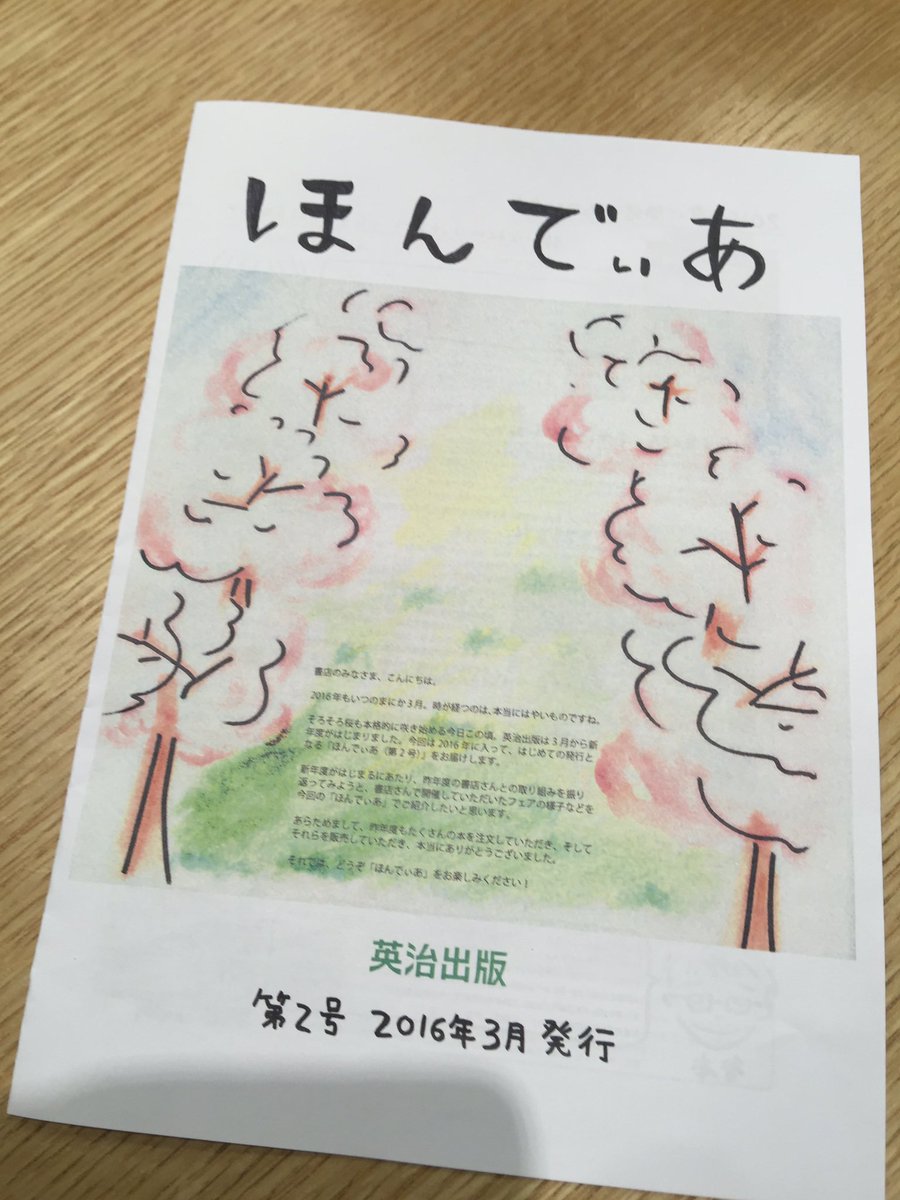 ほんでぃあ
書店のみなさま、こんにちは。
2016年もいつのまにか3月。時が経つのは、本当にはやいものですね。
そろそろ桜も本格的に咲き始める今日この頃。英治出版は3月から新
年度がはじまりました。今回は2016年に入って、はじめての発行と
なる「ほんでぃあ（第2号）」をお届けします。
新年度がはじまるにあたり、昨年度の書店さんとの取り組みを振り
返ってみようと、書店さんで開催していただいたフェアの様子などを
今回の「ほんでぃあ」でご紹介したいと思います。
あらためまして、昨年度もたくさんの本を注文していただき、そして
それらを販売していただき、本当にありがとうございました。
それでは、どうぞ「ほんでぃあ」をお楽しみください！
英治出版
第2号 2016年3月発行